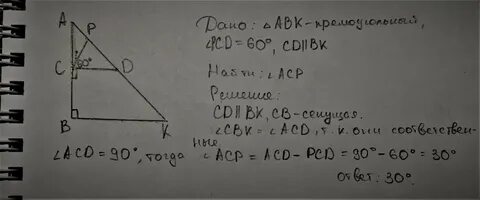 A
P
C
60°
D
B
K
Дано: △ABK-прямоугольный,
∠PCD=60°, CD∥BK
Найти: ∠ACP
Решение:
CD∥BK, CB-секущая.
∠CBK = ∠ACD, т.к. они соответствен-
ные
∠ACD=90°, тогда ∠ACP = ACD-PCD=90°-60°=30°
ответ: 30°.